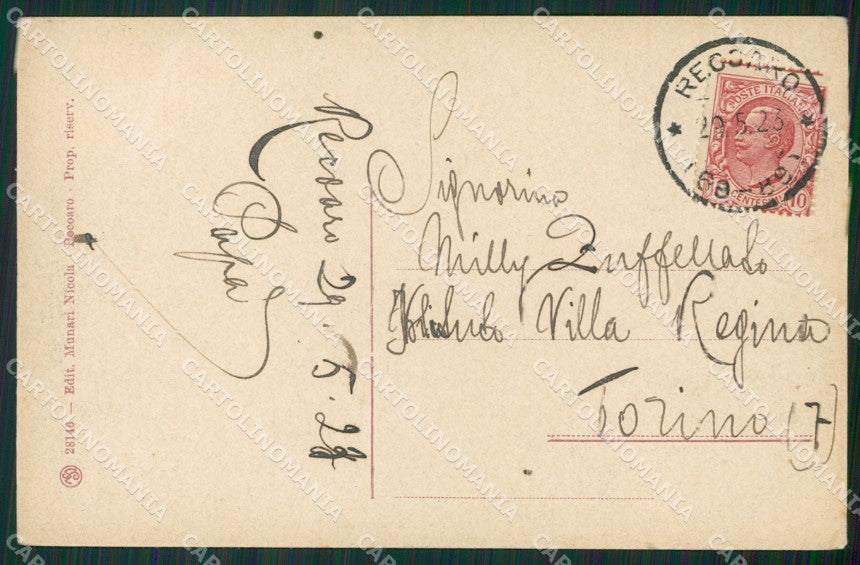 Recoaro 29. 5. 23
Papà
Signorina
Milly Zuffellato
Istituto Villa Regina
Torino (7)
28146 — Edit. Munari Nicola Recoaro - Prop. riserv.
RECOARO
29.5.23
POSTE ITALIANE
CENTESIMI 10
CARTOLINOMANIA